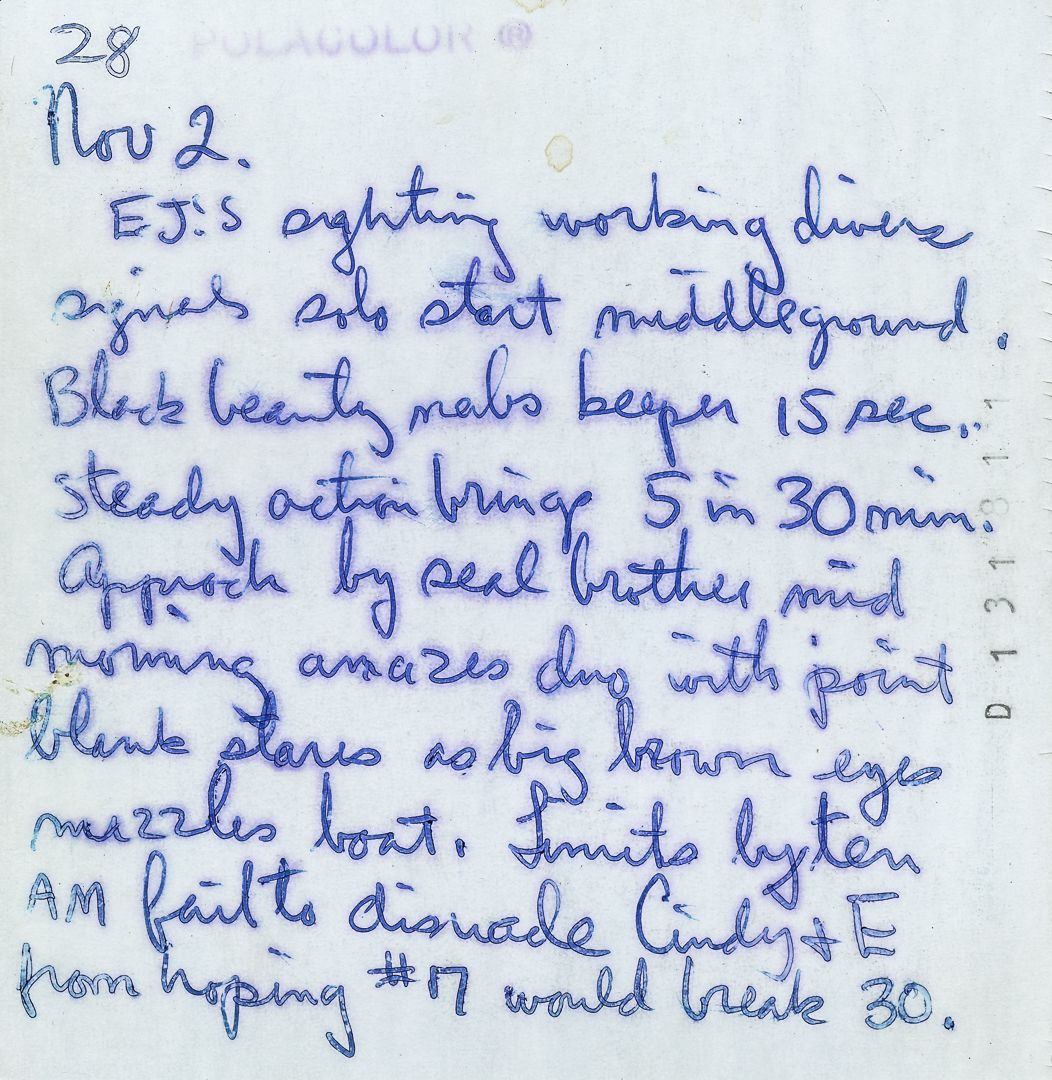 28 POLACOLOR ®
Nov 2.
EJ's sighting working divers
signals solo start middleground.
Black beauty nabs keeper 15 sec..
Steady action brings 5 in 30 min.
Approch by seal brother mid
morning amazes duo with point
blank stares as big brown eyes
nuzzles boat. Limits by ten
AM fail to disuade Cindy + E
from hoping #17 would break 30.
D 1 3 1 8 1 1